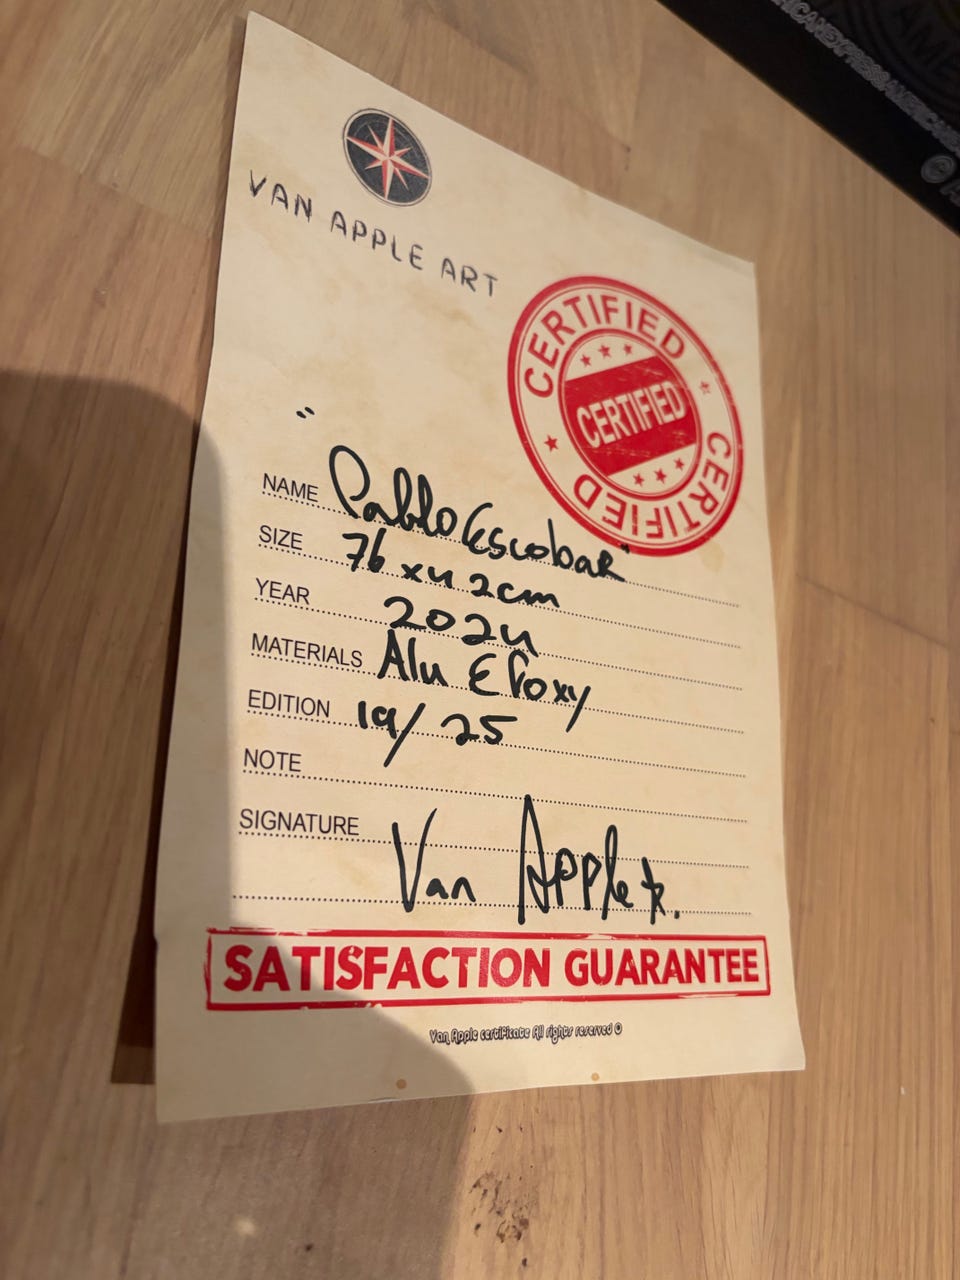 VAN APPLE ART
CERTIFIED
CERTIFIED
CERTIFIED
CERTIFIED
NAME "Pablo Escobar"
SIZE 76 x 42cm
YEAR 2024
MATERIALS Alu Epoxy
EDITION 19/25
NOTE
SIGNATURE
Van Apple
SATISFACTION GUARANTEE
Van Apple certificate All rights reserved ©